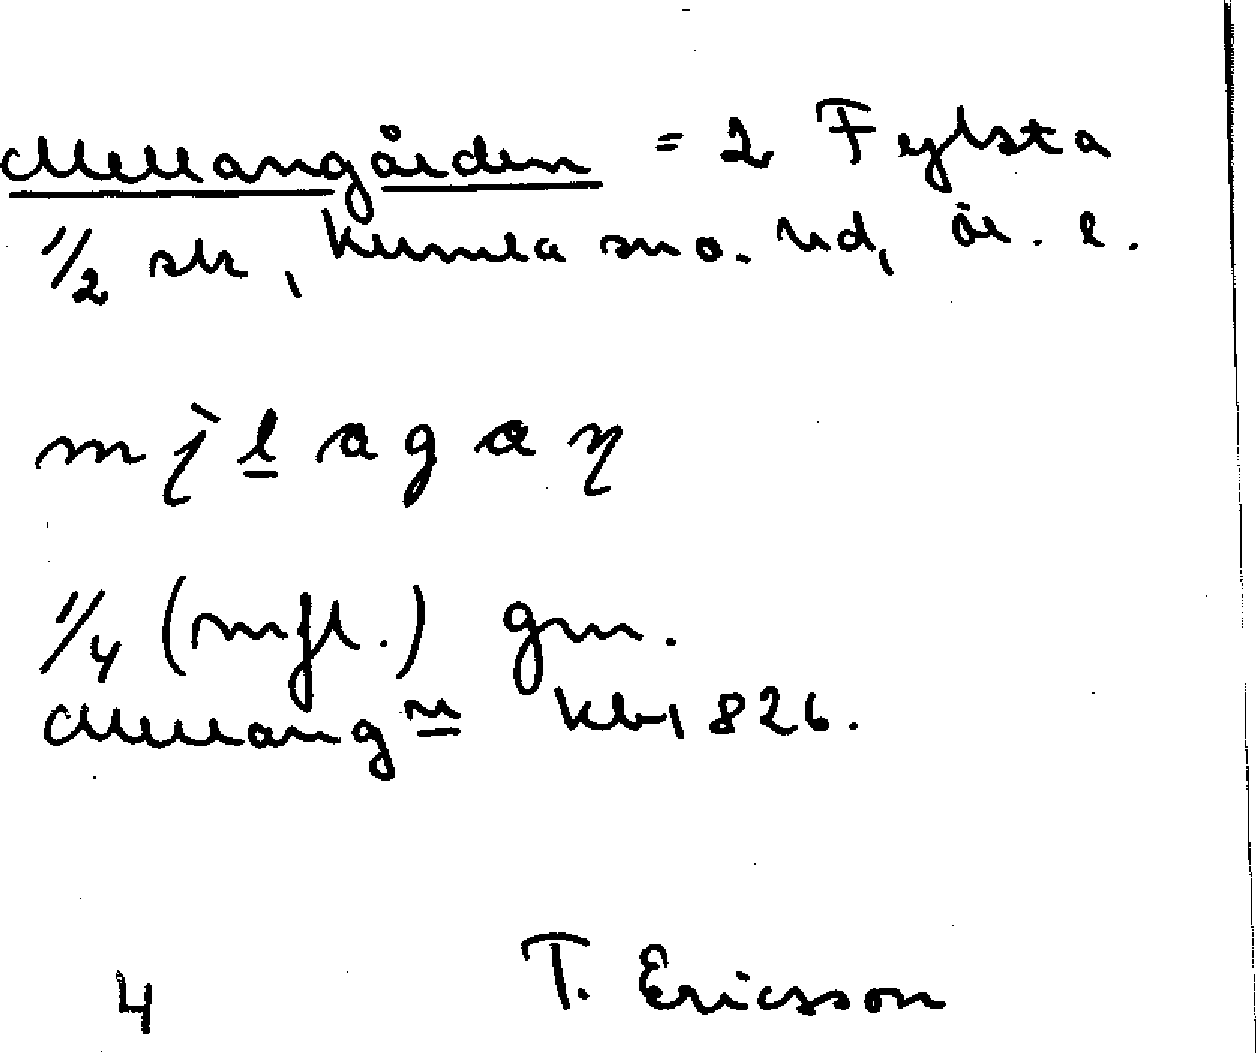 Mellangården = 2 Fylsta
1/2 sk, Kumla sn o. hd, ör. l.
1/4 (mfl.) gm.
Mellang<u>n</u> kb 1826.
4 T. Ericsson